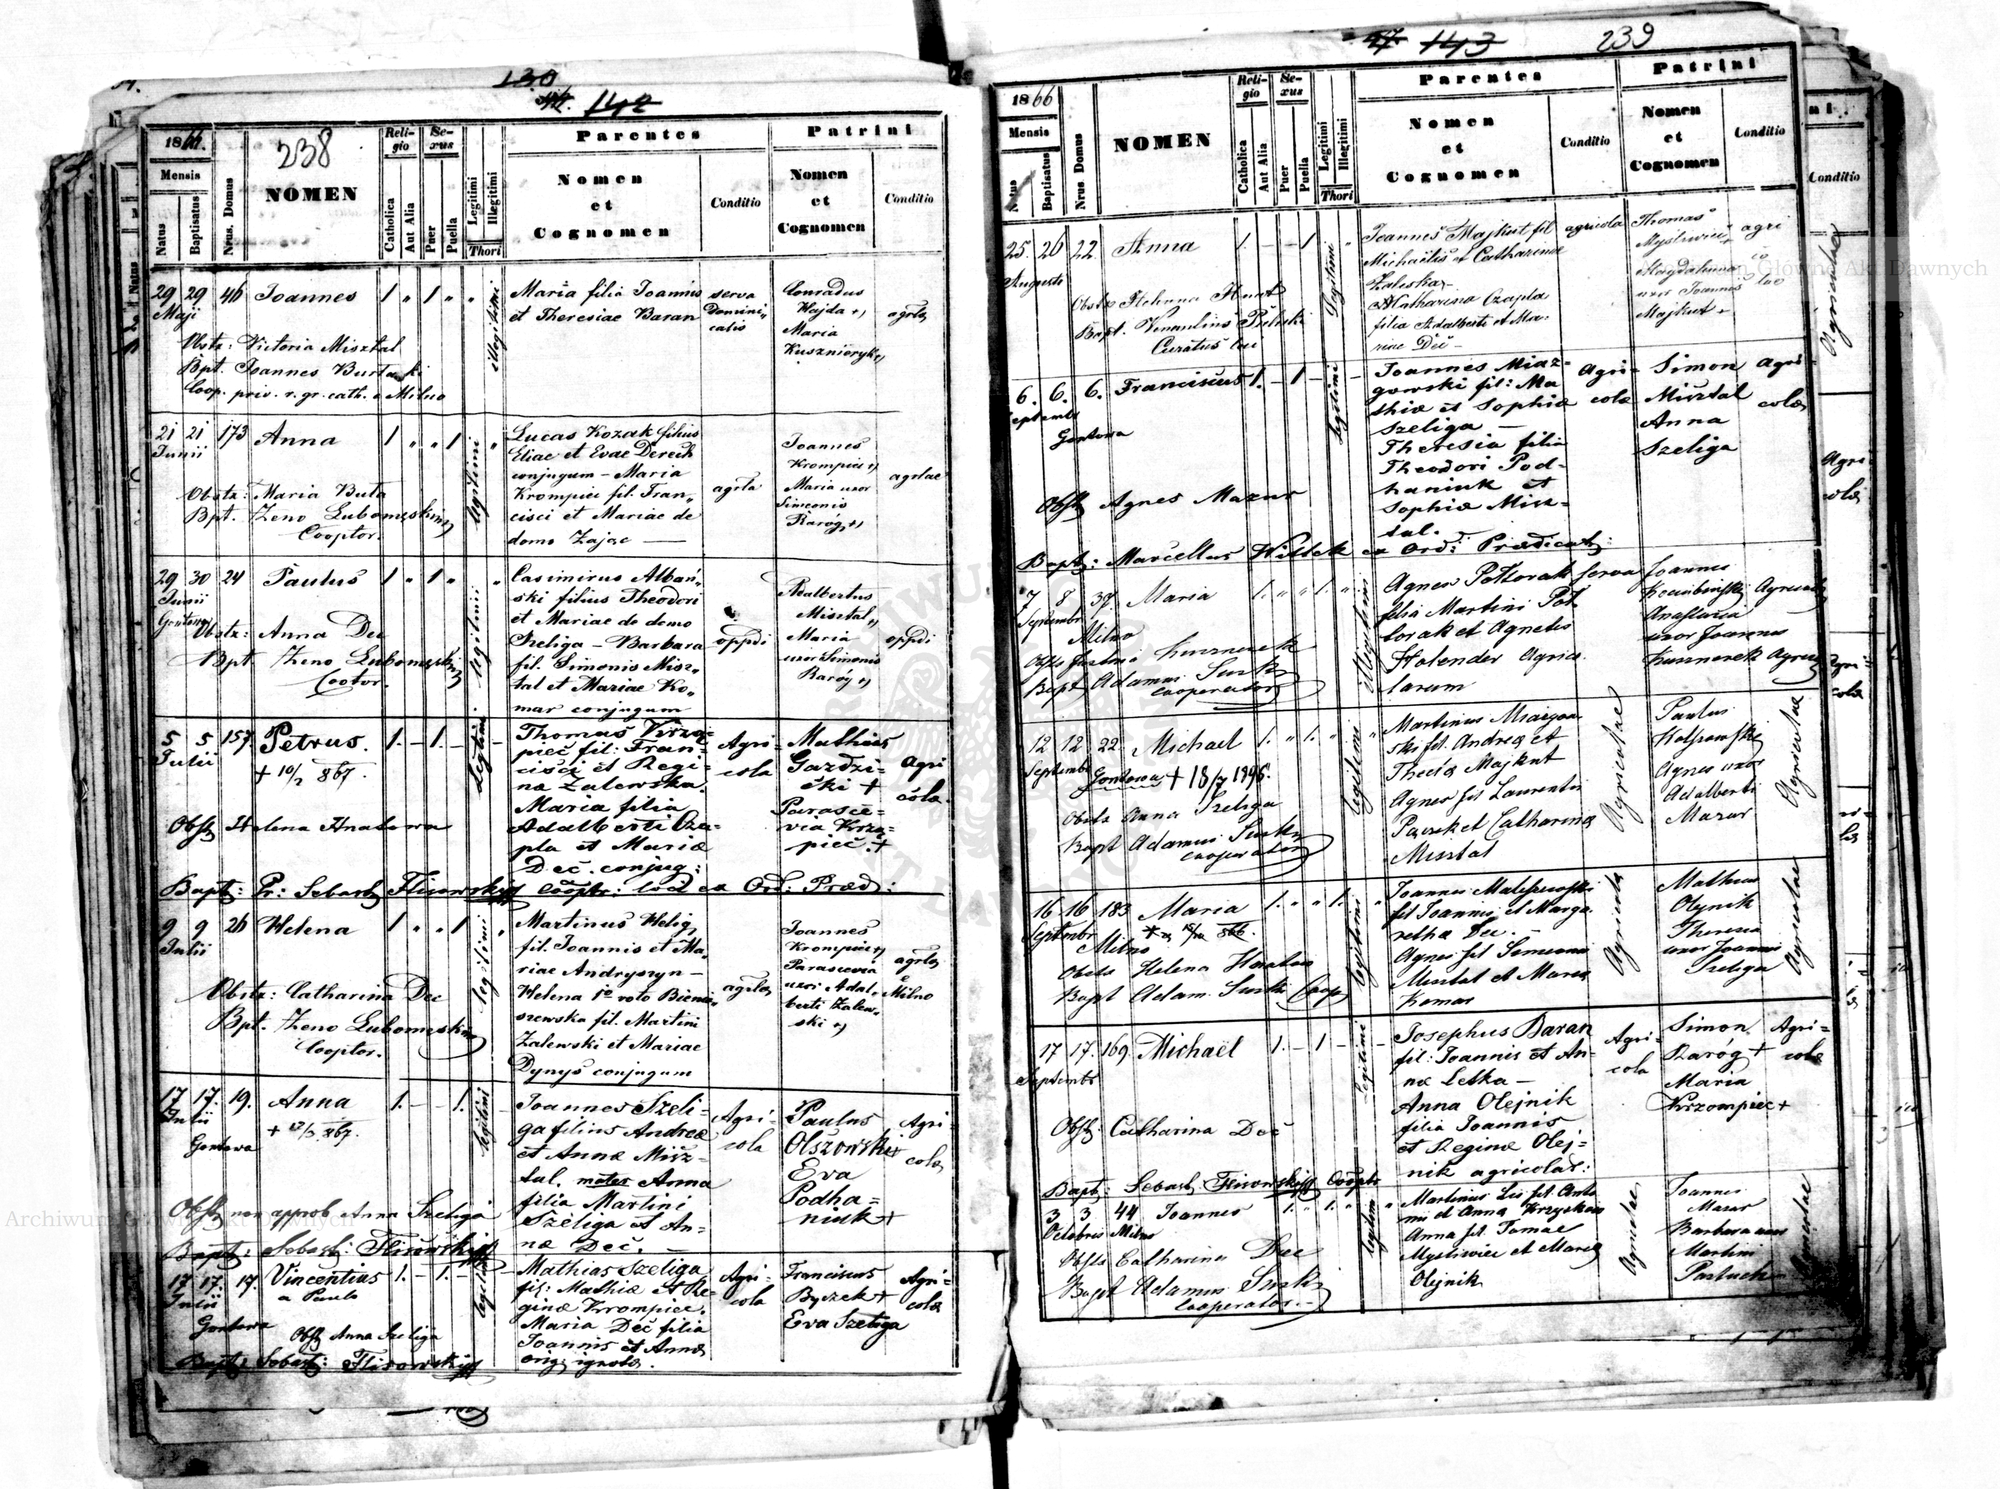 130
142
1866.
Mensis
Natus
Baptisatus
Nrus. Domus
238
NOMEN
Religio
Catholica
Aut Alia
Sexus
Puer
Puella
Legitimi
Illegitimi
Thori
Parentes
Nomen
et
Cognomen
Conditio
Patrini
Nomen
et
Cognomen
Conditio
29 29 46 Joannes 1 " 1 " "
Maji
illegitimi
Maria filia Joannis
et Theresiae Baran
serva
Domini„
calis
Conradus
Wajda +,
Maria
Kusznieryk
agrla
Obstz: Victoria Misztal
Bpt. Joannes
Coop. priv. r. gr. cath. a Milno
21 21 173 Anna 1 " " 1 "
Junii
legitimi
Lucas Kozak filius
Eliae et Evae Derech
conjugum – Maria
Krompiec fil. Fran„
cisci et Mariae de
domo Zajac —
agrla
Joannes
Krompiec
Maria uxor
Simeonis
Raróg +,
agrlae
Obstz: Maria Buta
Bpt. Zeno Lubomęski
Cooptor.
29 30 24 Paulus 1 " 1 " "
Junii
legitimi
Casimirus Albań„
ski filius Theodori
et Mariae de domo
Szeliga – Barbara
fil. Simonis Misz„
tal et Mariae Ko„
mar conjugum
oppdi
Adalbertus
Misztal
Maria
uxor Simonis
Raróg
oppdi
Obstz: Anna Dec
Bpt Zeno Lubomęski
Cootor.
5 5 157 Petrus. 1. – 1. – –
Julii
+ 10/2 867.
Legitimi
Thomas Krzą-
pieć fil: Fran-
cisci et Regi-
na Zalewska.
Maria filia
Adalberti Cza-
pla et Mariæ
Deć. conjug:
Agri-
cola
Mathias
Gaździ-
cki +
Parasce-
via Krzą-
pieć. +
Agri
colæ
Obst Helena Hnatowa
Bapt: Pr: Sebast Flisowski Cooptr: loci ex Ord: Præd:
9 9 26 Helena 1 " " 1 "
Julii
legitimi
Martinus Helig„
fil. Joannis et Ma„
riae Andryszyn –
Helena 1º voto Bienia„
szewska fil. Martini
Zalewski et Mariae
Dynys conjugum
agrla
Joannes
Krompiec
Parascevia
uxor Adal„
berti Zalew„
ski
agrla
Milno
Obstz: Catharina Dec
Bpt. Zeno Lubomęski
Cooptor.
17 17. 19. Anna 1. – – 1. –
Julii
+ 12/3 867.
Gontowa
legitimi
Joannes Szeli-
ga filius Andreæ
et Annæ Misz-
tal. mater Anna
filia Martini
Szeliga et An-
næ Deć.
Agri-
cola
Paulus
Olszowski +
Eva
Podha=
niuk +
Agri-
colæ
Obst non approb Anna Szeliga
Bapt: Sebast: Flisowski
17 17. 17. Vincentius 1. – 1. –
Julii
a Paulo
Gontowa
legitimi
Mathias Szeliga
fil: Mathiæ et Re-
ginæ Krompiec.
Maria Deć filia
Joannis et Annæ
orig: ignotæ.
Agri-
cola
Franciscus
Byczek +
Eva Szeliga
Agri-
colæ
Obst Anna Szeliga
Bapt: Sebast: Flisowski
143 239
1866
Mensis
Natus
Baptisatus
Nrus Domus
NOMEN
Religio
Catholica
Aut Alia
Sexus
Puer
Puella
Legitimi
Illegitimi
Thori
Parentes
Nomen
et
Cognomen
Conditio
Patrini
Nomen
et
Cognomen
Conditio
25. 26 22. Anna 1. – – 1 "
Augusti
Legitimi
Joannes Majkut fil
Michaelis et Catharina
Zaleska –
Catharina Czapla
filia Adalberti et Ma-
riae Deć –
agricola
Thomas
Mysliwiec
Magdalena
uxor Joannis
Majkut
agri
co
lae
Obstz Helena Hnat
Bapt.
Curatus loci
6. 6. 6. Franciscus 1. – 1 – –
Septembr
Gontowa
Legitimi
Joannes Miaz-
gowski fil: Ma
thiæ et Sophiæ
Szeliga –
Theresia filia
Theodori Pod-
haniuk et
Sophiæ Misz-
tal.
Agri-
colæ
Simon
Misztal
Anna
Szeliga
Agri-
colæ
Obst Agnes Mazur
Bapt: Marcellus Wittek ex Ord: Prædicat:
7 8 37. Maria 1. " " 1. "
Septembr
Milno
Illegitimi
Agnes Poltorak serva
filia Martini Pol
torak et Agnetis
Holender Agrico
larum
Joannes
Anastasia
uxor Joannis
Kusznerek
Bapt Adamus Surki
cooperator
12 12 22. Michael 1. " 1. " "
Septembr
Gontowa + 18/7 1896.
legitimi
Martinus Miazgow
ski fil. Andreæ et
Thecla Majkut
Agnes fil Laurentii
Paszek et Catharina
Misztal
Agricolae
Paulus
Agnes uxor
Adalberti
Mazur
Agricolae
Obstz Anna Szeliga
Bapt Adamus Surki
cooperator
16 16 183 Maria 1. " " 1. "
Septembr
Milno
legitimi
Joannes Maliszewski
fil Joannis et Marga
retha Dec. –
Agnes fil Simeonis
Misztal et Maria
Komar
Agricola
Matheus
Olynik
Theresia
uxor Joannis
Szeliga
Agricolae
Obstz Helena Hnatow
Bapt Adam. Surki Coop
17 17. 169. Michaël 1. – 1 – –
Septembr
Legitimi
Josephus Baran
fil: Joannis et An-
næ Letka –
Anna Olejnik
filia Joannis
et Reginæ Olej-
nik agricolar:
Agri-
cola
Simon
Raróg +
Maria
Krzompiec +
Agri=
colæ
Obst: Catharina Deć
Bapt: Sebast Flisowski Cooptr
3 3 44 Joannes 1. " 1. " "
Octobris Milno
legitim
Martinus Lis fil. Anto
ni et Anna Krzyskow
Anna fil. Tomae
Mysliwiec et Maria
Olejnik
Agricolae
Joannes
Mazur
Barbara uxor
Martini
Pastuch
Agricolae
Obstz Catharina Dec
Bapt Adamus Surki
cooperator. –
Conditio
Agricolae
Agri-
colæ
Agri-
colæ
Archiwum Główne Akt Dawnych
Archiwum Główne Akt Dawnych